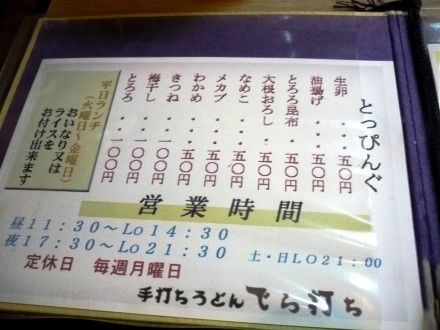 とっぴんぐ
生卵・・・五〇円
油揚げ・・・五〇円
とろろ昆布・・五〇円
大根おろし・・五〇円
なめこ・・・五〇円
メカブ・・・五〇円
わかめ・・・五〇円
きつね・・一〇〇円
梅干し・・一〇〇円
とろろ・・一〇〇円
平日ランチ
(火曜日～金曜日)
おいなり又は
ライスを
お付け出来ます
営業時間
昼11:30～Lo14:30
夜17:30～Lo21:30 土・日LO21:00
定休日 毎週月曜日
手打ちうどん でら打ち